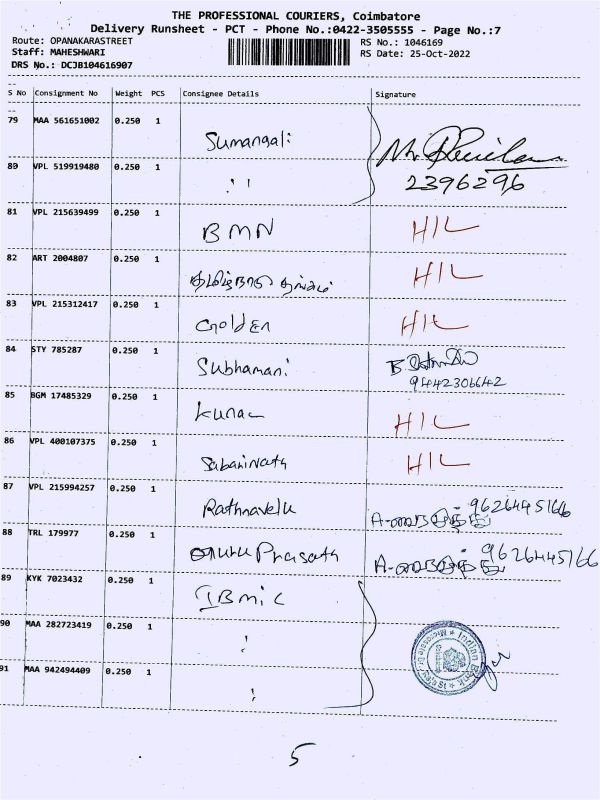 THE PROFESSIONAL COURIERS, Coimbatore
Delivery Runsheet - PCT - Phone No.:0422-3505555 - Page No.:7
Route: OPANAKARASTREET RS No.: 1046169
Staff: MAHESHWARI RS Date: 25-Oct-2022
DRS No.: DCJB104616907
S No Consignment No Weight PCS Consignee Details Signature
79 MAA 561651002 0.250 1 Sumangali
80 VPL 519919480 0.250 1 '' 2396296
81 VPL 215639499 0.250 1 BMN H/L
82 ART 2004807 0.250 1 H/L
83 VPL 215312417 0.250 1 Golden H/L
84 STY 785287 0.250 1 Subhamani B.
9442306642
85 BGM 17485329 0.250 1 H/L
86 VPL 400107375 0.250 1 H/L
87 VPL 215994257 0.250 1 Rathnavelu A- 9626445166
88 TRL 179977 0.250 1 Prasath A- 9626445166
89 KYK 7023432 0.250 1 IB
90 MAA 282723419 0.250 1 Indian Bank
91 MAA 942494409 0.250 1
5